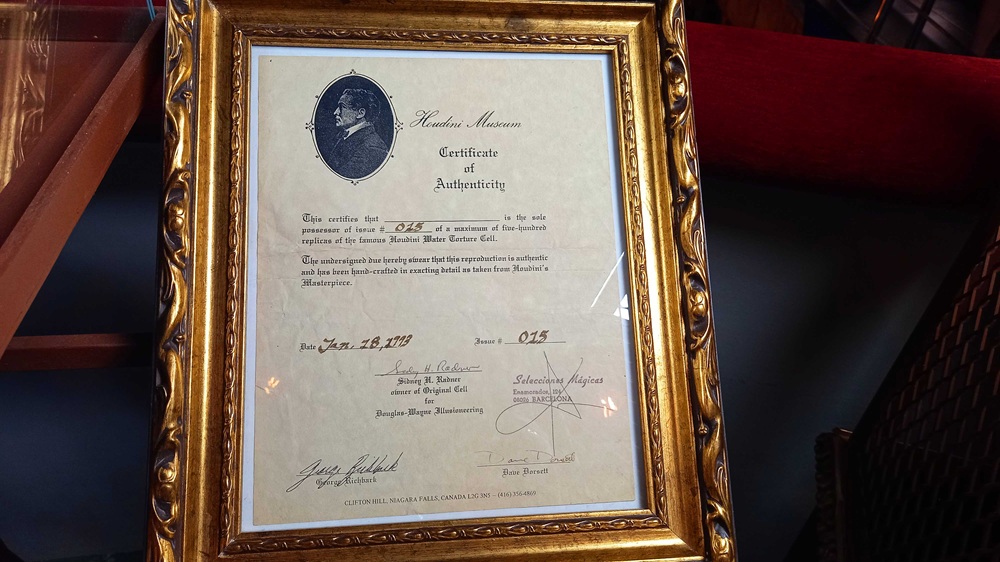 Houdini Museum
Certificate
of
Authenticity
This certifies that ____________________ is the sole
possessor of issue # 015 of a maximum of five-hundred
replicas of the famous Houdini Water Torture Cell.
The undersigned due hereby swear that this reproduction is authentic
and has been hand-crafted in exacting detail as taken from Houdini's
Masterpiece.
Date Jan. 18, 1993 Issue # 015
Sidney H. Radner
Sidney H. Radner
owner of Original Cell
for
Douglas-Wayne Illusioneering
Selecciones Mágicas
Enamorados, 104
08026 BARCELONA
George Richbark
George Richbark
Dave Dorsett
Dave Dorsett
CLIFTON HILL, NIAGARA FALLS, CANADA L2G 3N5 – (416) 356-4869